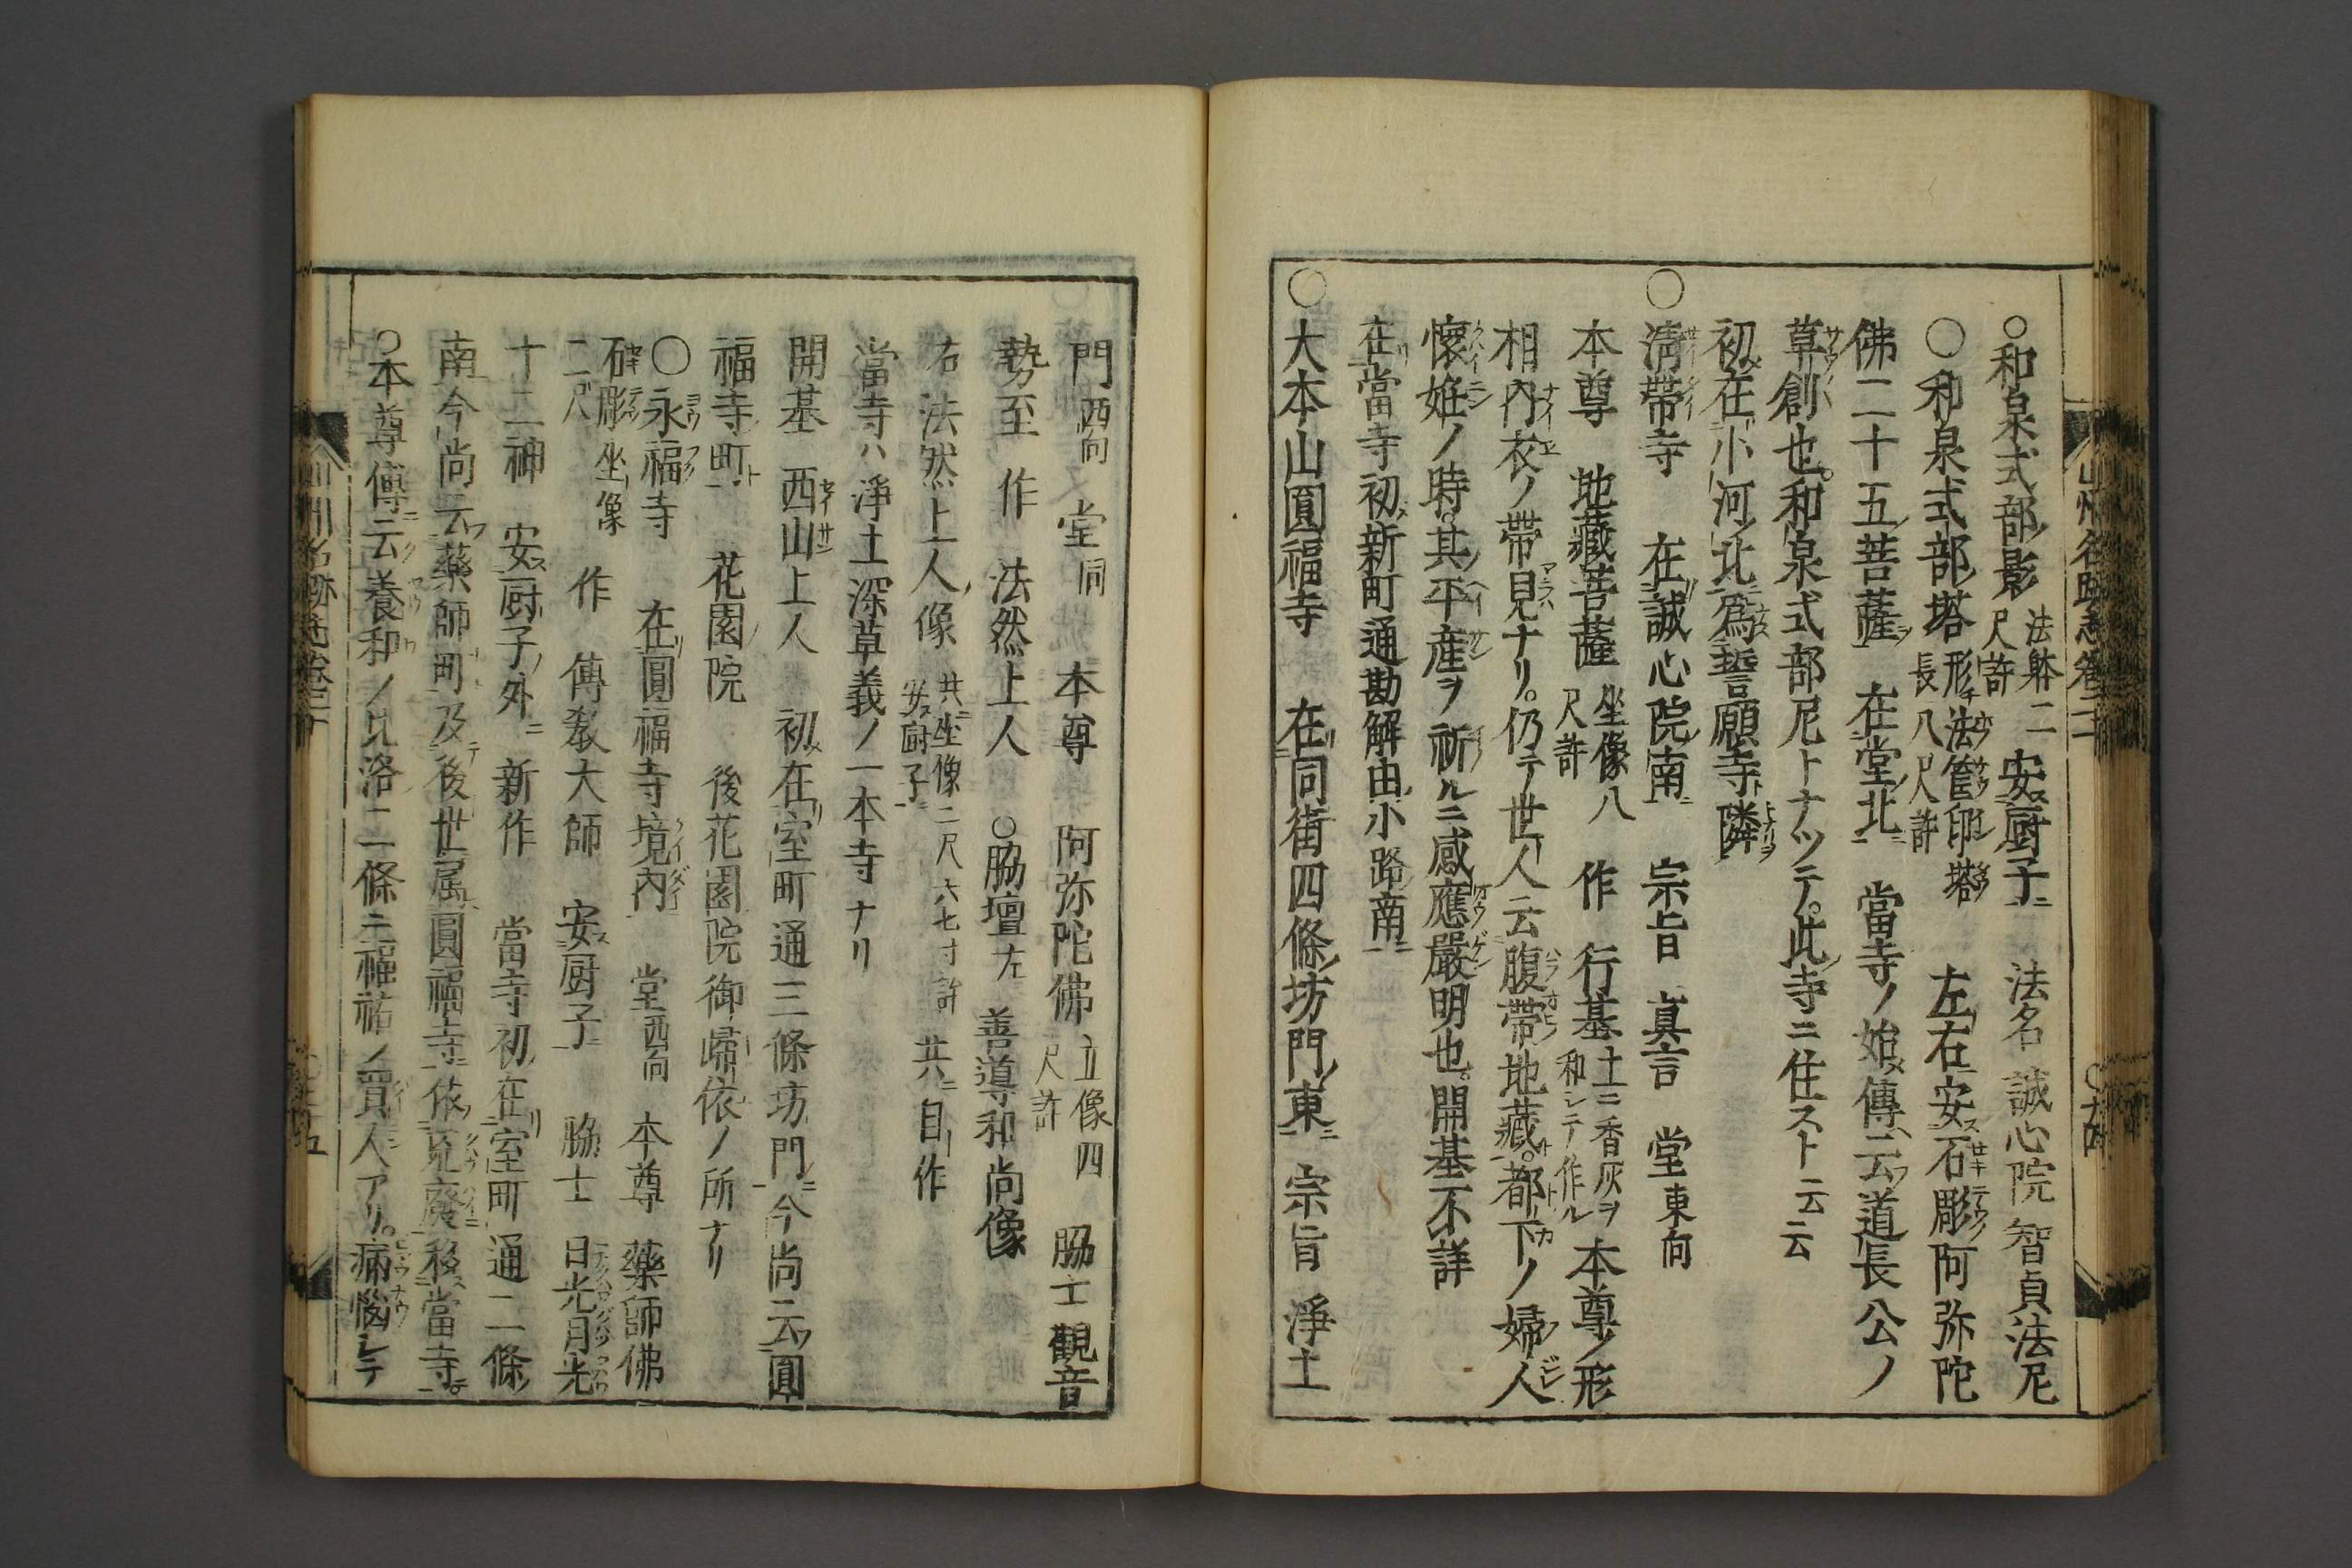 ○和泉式部ノ影 法躰二尺許 安ス厨子ニ 法名 誠心院 智貞法尼
○和泉式部ノ塔 形チ法篋印塔 長八尺許 左右ニ安ス石彫ノ阿弥陀
佛二十五菩薩ヲ 在堂ノ北ニ 當寺ノ始メ傳ヘ云フ道長公ノ
草創也。和泉式部尼トナツテ。此ノ寺ニ住スト云云
初メ在小河ノ北ニ為誓願寺ノ隣ヲ
○清帶寺 在誠心院ノ南ニ 宗旨 真言 堂東向
本尊 地藏菩薩 坐像八尺許 作 行基 土ニ香灰ヲ和シテ作ル 本尊ノ形
相内衣ノ帶見ナリ。仍テ世人云腹帶ノ地藏ト。都下ノ婦人
懷姙ノ時。其ノ平産ヲ祈ルニ感應嚴明也。開基不詳
在當寺初メ新町通勘解由小路ノ南ニ
○大本山圓福寺 在同街四條坊門ノ東ニ 宗旨 淨土
門西向 堂同 本尊 阿弥陀佛 立像四尺許 脇士觀音
勢至 作 法然上人 ○脇壇左 善導和尚像
右 法然上人ノ像 共ニ坐像二尺六七寸許 安ス厨子ニ 共ニ自作
當寺ハ淨土深草義ノ一本寺ナリ
開基 西山上人 初メ在室町通三條坊門ニ今尚云フ圓
福寺町ト 花園ノ院 後花園院御歸依ノ所ナリ
○永福寺 在圓福寺境内ニ 堂西向 本尊 藥師佛
石彫坐像二尺 作 傳教大師 安ス厨子ニ 脇士 日光月光
十二神 安ス厨子ノ外ニ 新作 當寺初メ在室町通二條ノ
南ニ今尚云フ藥師町ト及テ後世ニ属ス圓福寺ニ依テ荒廢ニ移ス當寺ニ。
○本尊傳ニ云養和ノ比洛ノ二條ニ福祐ノ買人アリ。病惱シテ
山州名跡志卷二十 ○十四
山州名跡志卷二十